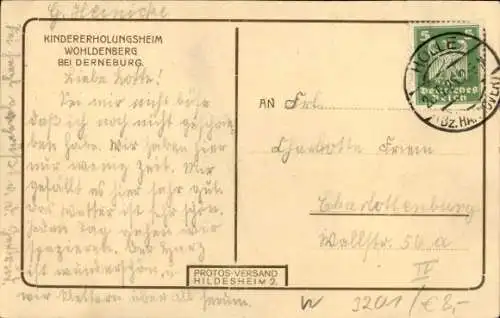 G. Heinicke
KINDERERHOLUNGSHEIM
WOHLDENBERG
BEI DERNEBURG.
Liebe Lotte!
Sei mir nicht böse
daß ich noch nicht geschrie-
ben habe. Wir haben hier
nur wenig Zeit. Mir
gefällt es hier sehr gut
das Wetter ist sehr schön.
Jeden Tag gehen wir
spazieren. Der Harz
ist wunderschön,
wir klettern über all herum.
PROTOS-VERSAND
HILDESHEIM 2.
AN Frl.
Charlotte
Charlottenburg
Wallstr. 56 a
II
5 5
Deutsches
Reich
HOLLE
(BZ. HANNOVER)
W 3201/€8,-